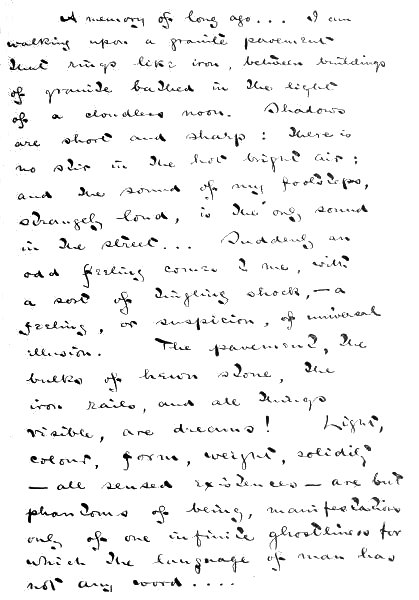 A memory of long ago... I am
walking upon a granite pavement
that rings like iron, between buildings
of granite bathed in the light
of a cloudless noon. Shadows
are short and sharp: there is
no stir in the hot bright air;
and the sound of my footsteps,
strangely loud, is the only sound
in the street... Suddenly an
odd feeling comes to me, with
a sort of tingling shock,—a
feeling, or suspicion, of universal
illusion. The pavement, the
bulks of hewn stone, the
iron rails, and all things
visible, are dreams! Light,
colour, form, weight, solidity
—all sensed existences—are but
phantoms of being, manifestations
only of one infinite ghostliness for
which the language of man has
not any word....